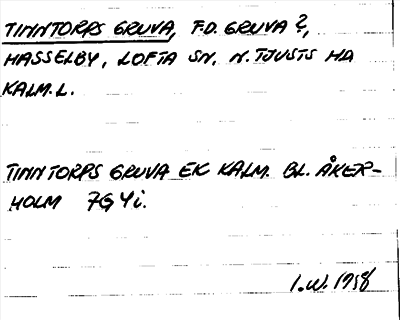 TINNTORPS GRUVA, F.D. GRUVA?,
HASSELBY, LOFTA SN, N. TJUSTS HD
KALM. L.
TINNTORPS GRUVA EK KALM. BL. ÅKER-
HOLM 7G4i.
I.W. 1958